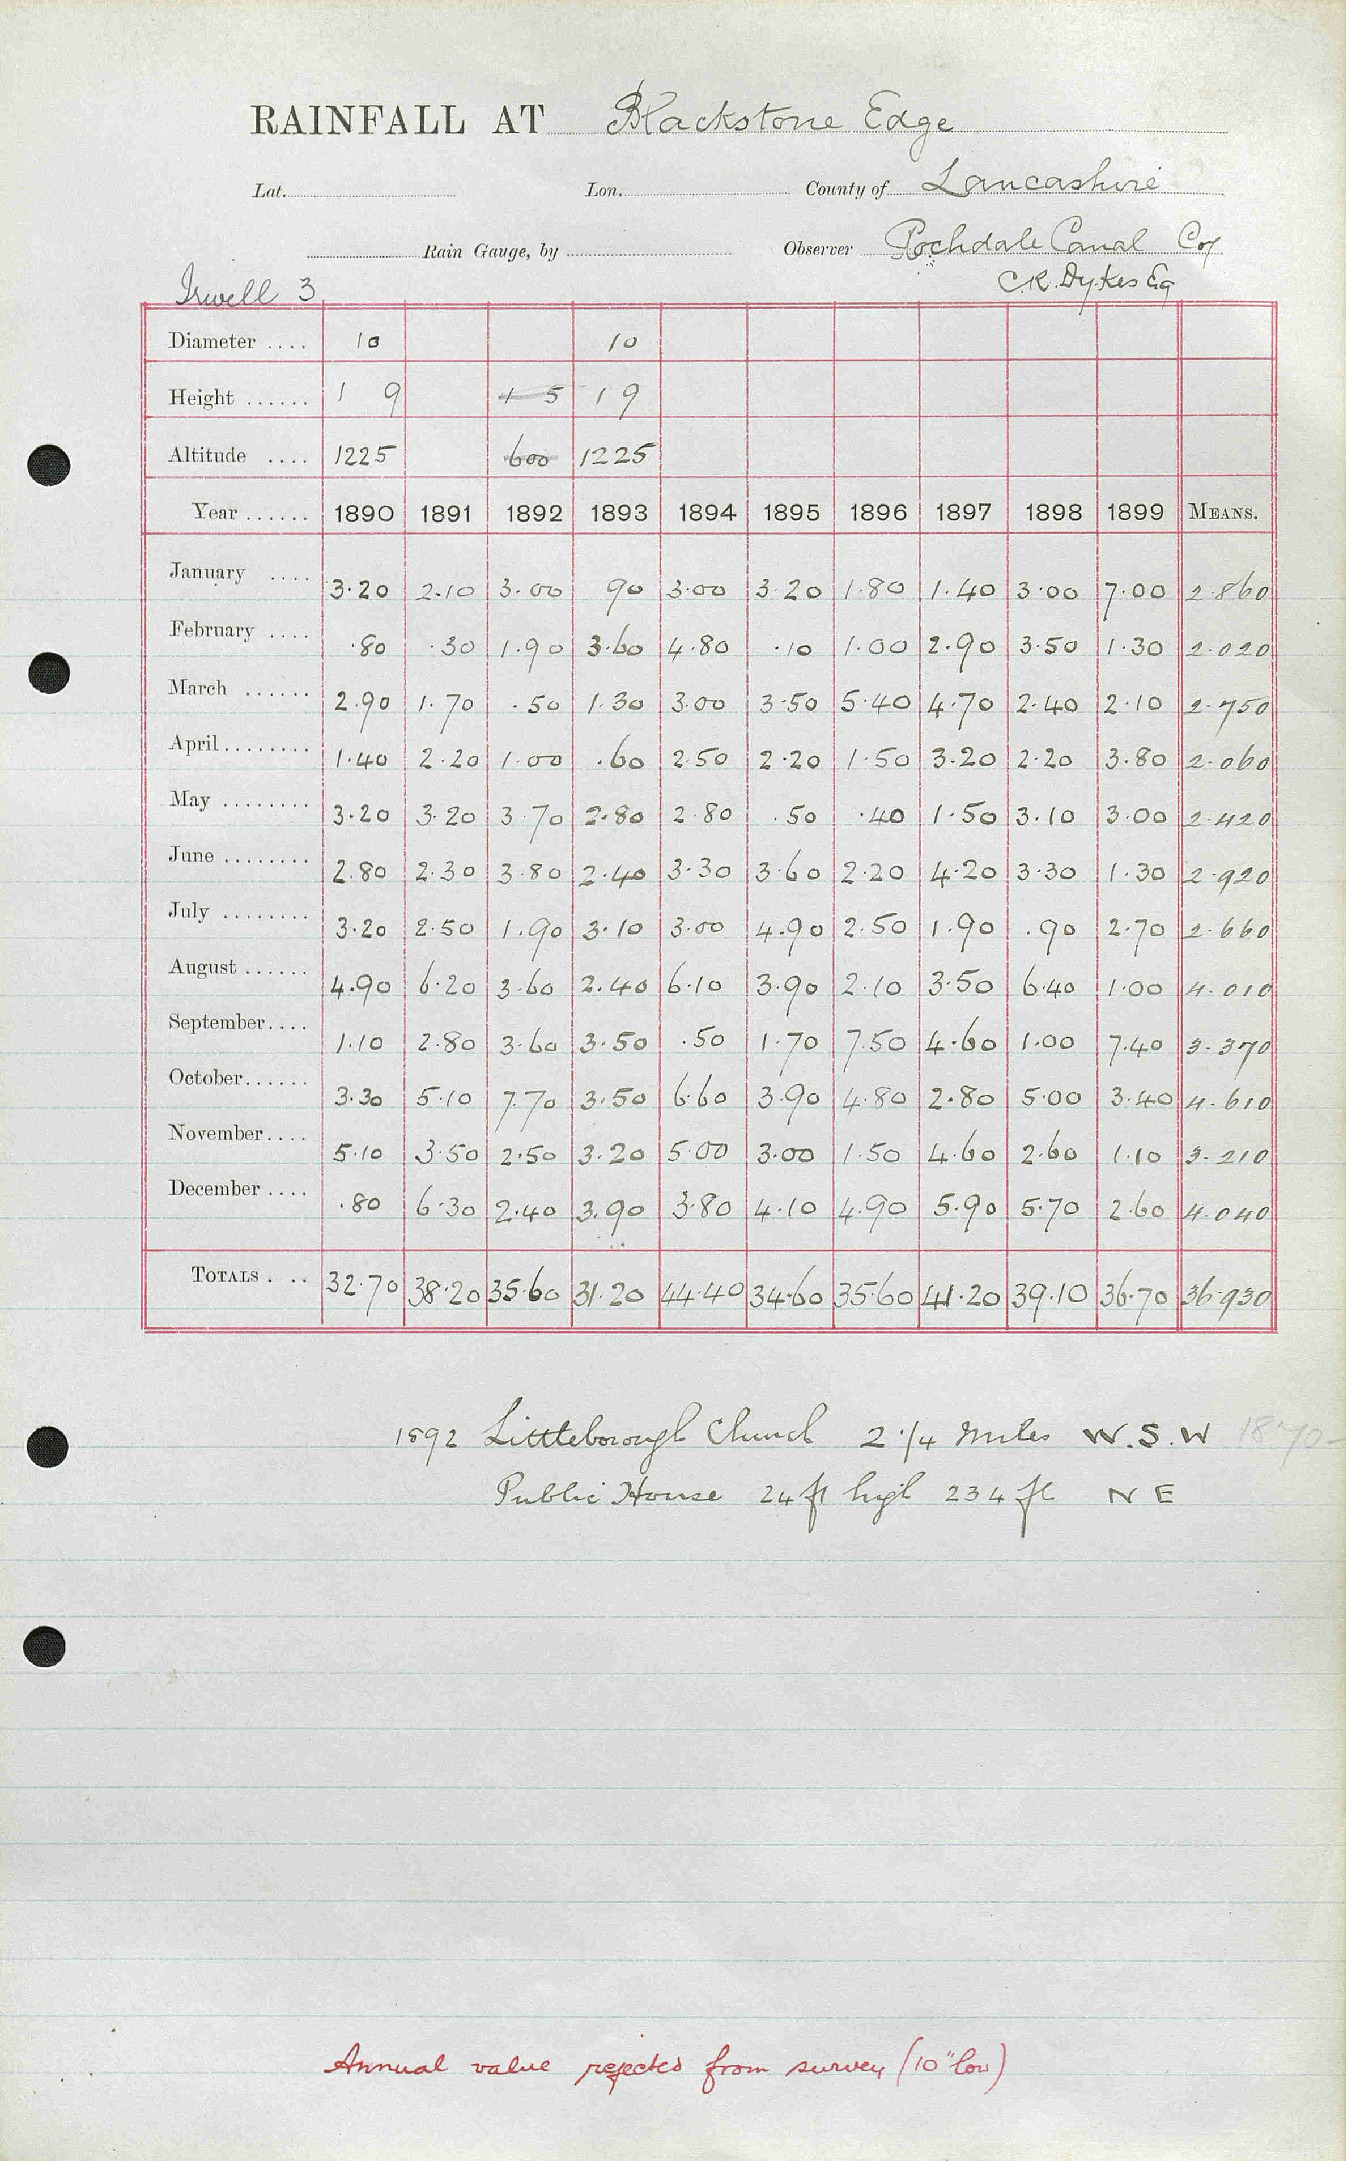 RAINFALL AT Blackstone Edge
Lat. Lon. County of Lancashire
Rain Gauge, by Observer Rochdale Canal Coy
Irwell 3 C.R. Dykes Esq
Diameter .... 10 10
Height ...... 1 9 1 5 1 9
Altitude .... 1225 600 1225
Year ...... 1890 1891 1892 1893 1894 1895 1896 1897 1898 1899 MEANS.
January .... 3.20 2.10 3.00 90 3.00 3.20 1.80 1.40 3.00 7.00 2.860
February .... .80 .30 1.90 3.60 4.80 .10 1.00 2.90 3.50 1.30 2.020
March ...... 2.90 1.70 .50 1.30 3.00 3.50 5.40 4.70 2.40 2.10 2.750
April ........ 1.40 2.20 1.00 .60 2.50 2.20 1.50 3.20 2.20 3.80 2.060
May ........ 3.20 3.20 3.70 2.80 2.80 .50 .40 1.50 3.10 3.00 2.420
June ........ 2.80 2.30 3.80 2.40 3.30 3.60 2.20 4.20 3.30 1.30 2.920
July ........ 3.20 2.50 1.90 3.10 3.00 4.90 2.50 1.90 .90 2.70 2.660
August ...... 4.90 6.20 3.60 2.40 6.10 3.90 2.10 3.50 6.40 1.00 4.010
September.... 1.10 2.80 3.60 3.50 .50 1.70 7.50 4.60 1.00 7.40 3.370
October...... 3.30 5.10 7.70 3.50 6.60 3.90 4.80 2.80 5.00 3.40 4.610
November.... 5.10 3.50 2.50 3.20 5.00 3.00 1.50 4.60 2.60 1.10 3.210
December .... .80 6.30 2.40 3.90 3.80 4.10 4.90 5.90 5.70 2.60 4.040
TOTALS . .. 32.70 38.20 35.60 31.20 44.40 34.60 35.60 41.20 39.10 36.70 36.930
1892 Littleborough Church 2 1/4 Miles W.S.W 1870-
Public House 24 ft high 234 ft N E
Annual value rejected from survey (10" low)